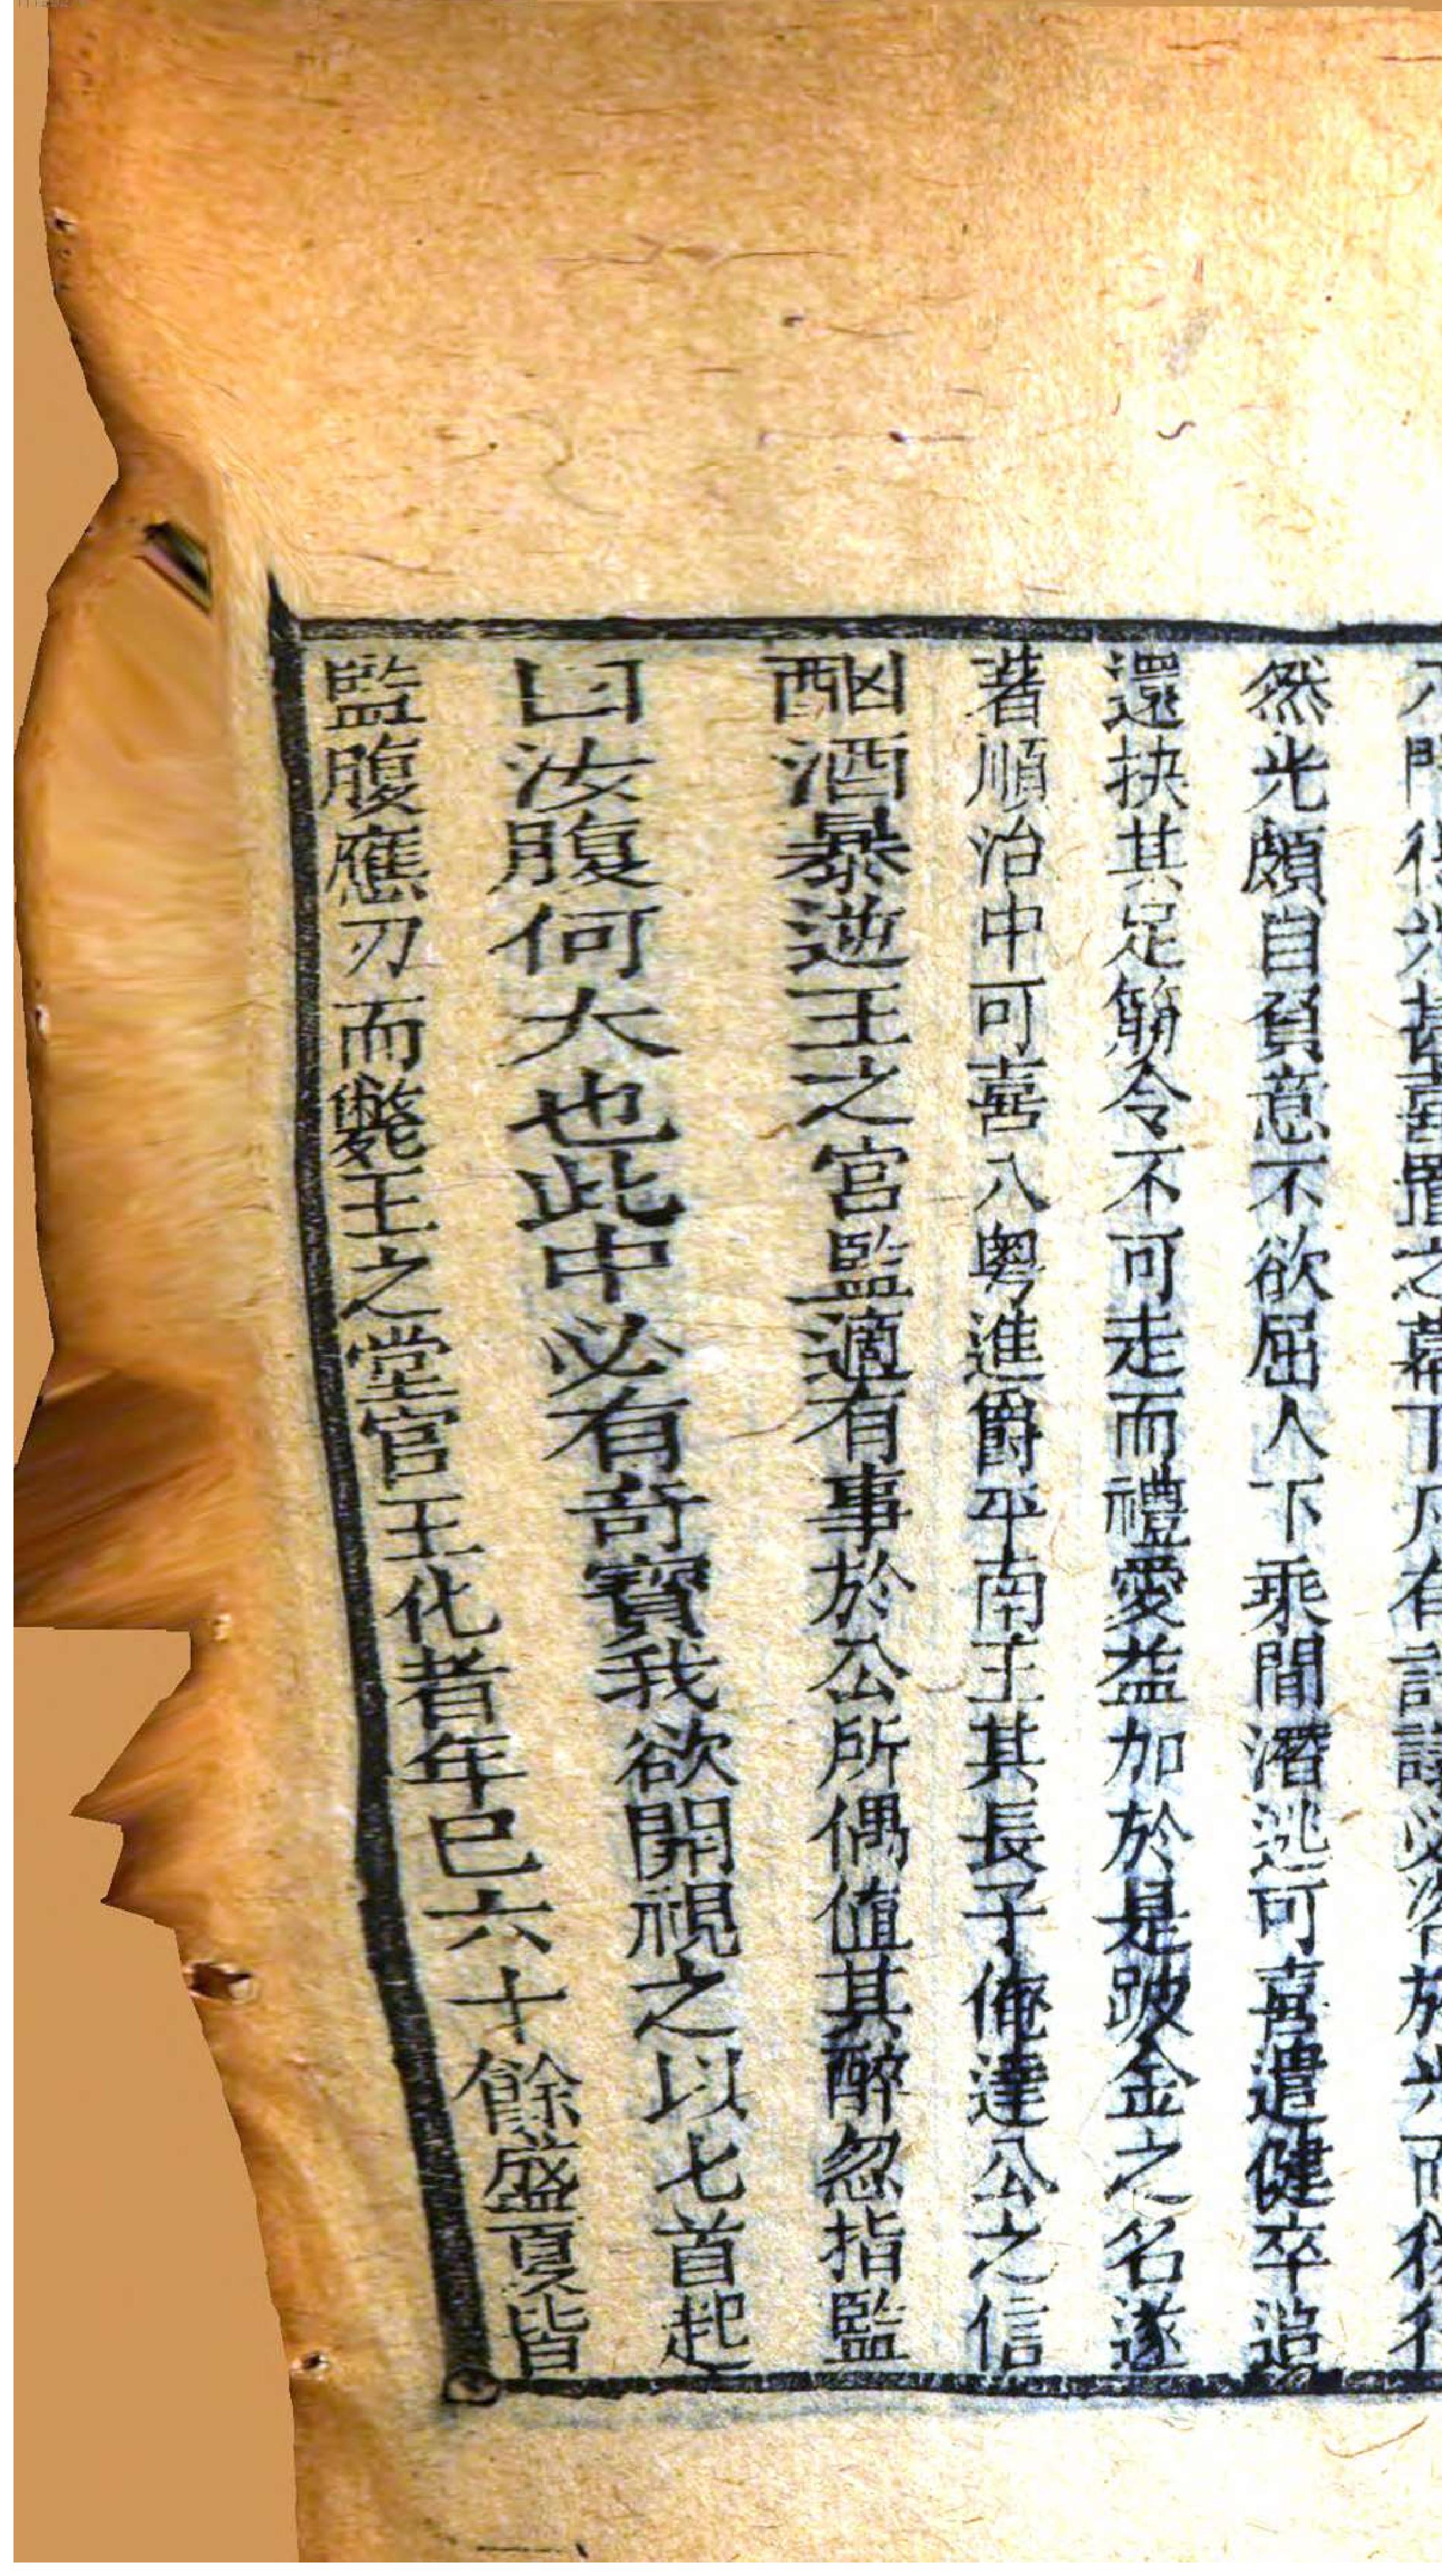 然光頗自負意不欲屈人下乘間潛逃可喜遣健卒追
還抉其足筋令不可走而禮愛益加於是跛金之名遂
著順治中可喜入粵進爵平南王其長子俺達公之信
酗酒暴逆王之宮監適有事於公所偶值其醉忽指監
曰汝腹何大也此中必有奇寶我欲開視之以七首起
監腹應刃而斃王之堂官王化者年已六十餘盛夏皆